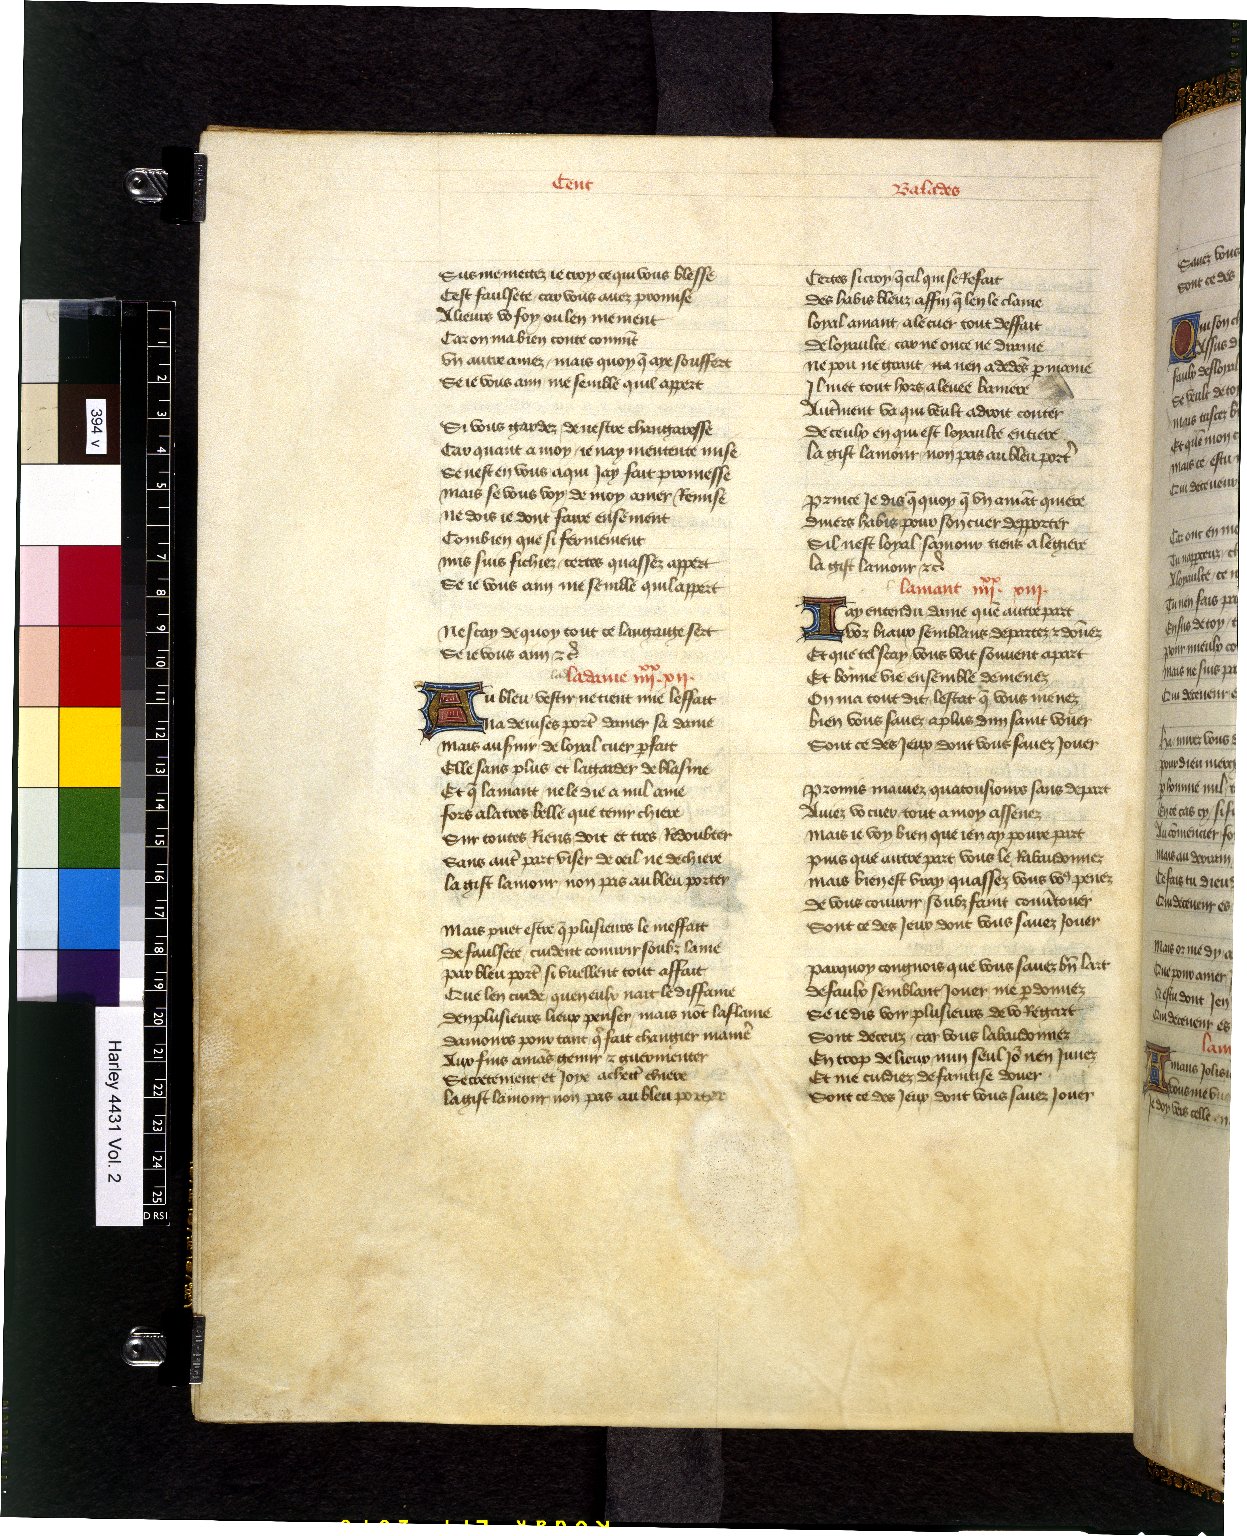 Cent
Balades
Sus me mettez ie croy ce qui vous blesse
Cest faulsete car vous auez promise
Ailleurs vo foy ou len me ment
Car on ma bien conte comment
Vn autre amez mais quoy q̃ aye souffert
Se ie vous aim me semble quil appert
Si vous gardez de nestre changarresse
Car quant a moy ie nay mentente mise
Se nest en vous a qui Jay fait promesse
Mais se vous voy de moy amer Remise
Ne dois ie dont faire ensement
Combien que si fermement
mis suis fichiez certes quassez appert
Se ie vous aim me semble quil appert
Ne scay de quoy tout ce langaige sert
Se ie vous aim ⁊c̃
la
La dame iiijxx xij
Au bleu vestir ne tient mie le ffait
Na deuises port̃ damer sa dame
Mais au suir de loyal cuer p̱fait
Elle sans plus et la garder de blasme
Et q̃ lamant ne le die a nul ame
fors a la tres belle que tenir chiere
Sur toutes Riens doit et tres Redoubter
Sans aut̃ part viser de oeil ne de chiere
La gist lamour non pas au bleu porter
Mais puet estre q̃ plusieurs le meffait
de faulsete cuident couurir soubz lame
par bleu port̃ si vuellent tout affait
Que len cuide quen eulx nait le diffame
den plusieurs lieux penser mais nõt la flame
damours pour tant q̃ fait changier manie᷑
Aux fins amãs gemir ⁊ guermenter
Secretement et Joye achet̃ chiere
La gist lamour non pas au bleu porter
Certes si croy q̃ cil qui se Refait
des habis bleux affin q̃ len le claime
loyal amant a le cuer tout deffait
de loyaulte car ne once ne drame
ne pou ne grant na nen a dedẽs p̱ mame
Il met tout hors a leuee baniere
Autr̃ment va qui veult a droit conter
de ceulx en qui est loyaulte entiere
La gist lamour non pas au bleu port̃
Prince Je dis q̃ quoy q̃ vn amãt quiere
diuers habis pour son cuer depporter
Sil nest loyal samour tiens a legiere
La gist lamour ⁊c̃
Lamant iiijxx xiij
Jay entendu dame que autre part
Voz biaux semblans departez ⁊ dõnez
Et que tel scay vous voit souuent apart
Et bonne vie ensemble demenez
On ma tout dit lestat q̃ vous menez
bien vous sauez a plus dun saint vouer
Sont ce des Jeux dont vous sauez Jouer
Promis mauiez qua tousiours sans depart
Auiez vo cuer tout a moy assenez
Mais ie voy bien que ien ay poure part
Puis que autre part vous le Rabandonnez
Mais bien est vray quassez vous vo⁹ penez
de vous couurir soubz faint conũtouer
Sont ce des Jeux dont vous sauez Jouer
Par quoy congnois que vous sauez bñ lart
de faulx semblant Jouer me p̱donnez
Se ie dis voir plusieurs de vo Regart
Sont deceuz car vous labandonnez
En trop de lieux nun seul Jõ nen Juuez
Et me cuidiez de faintise douer
Sont ce des Jeux dont vous sauez Jouer
Sauez vous
Sont ce des
394 v
Harley 4431 Vol. 2